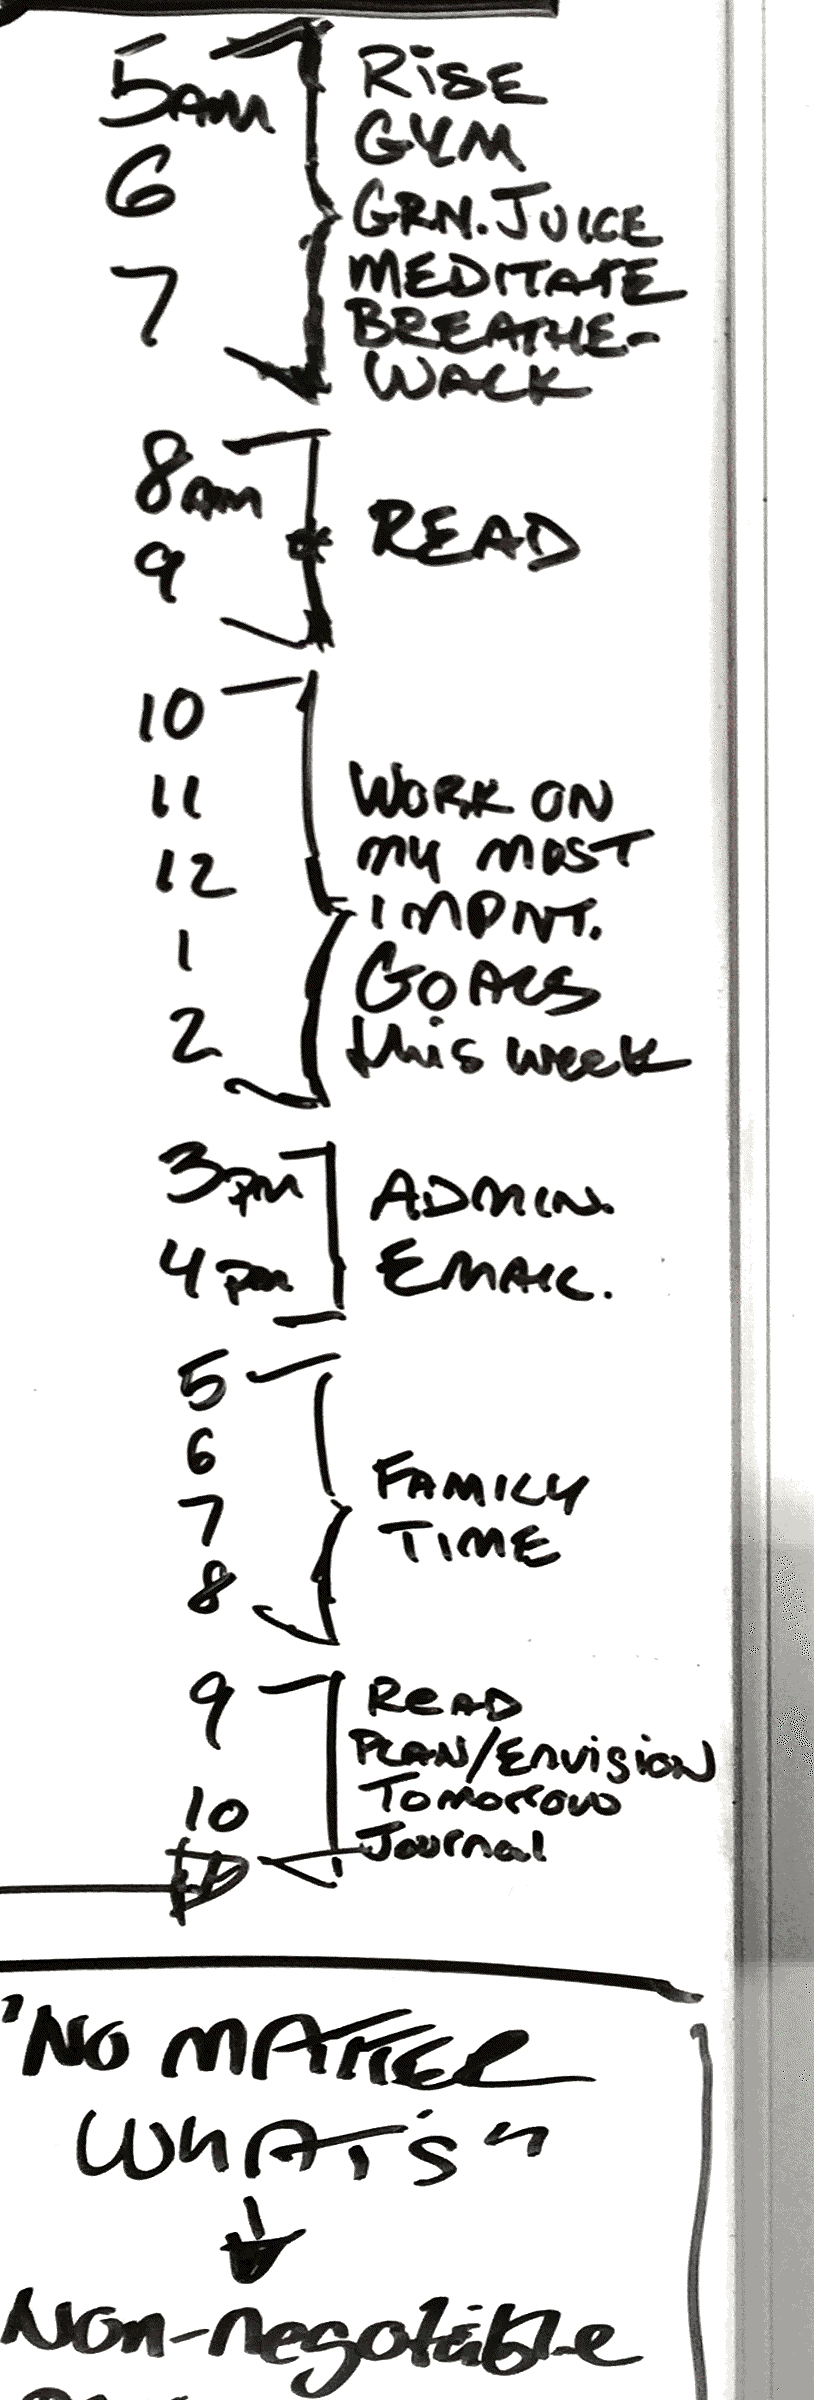 5AM
RISE
GYM
6
GRN. JUICE
7
MEDITATE
BREATHE-
WALK
8AM
READ
9
10
11
WORK ON
12
MY MOST
IMPNT.
1
GOALS
2
this week
3PM
ADMIN.
4PM
EMAIL.
5
6
FAMILY
7
TIME
8
9
READ
PLAN/ENVISION
10
TOMORROW
Journal
"NO MATTER
WHAT'S"
Non-negotiable